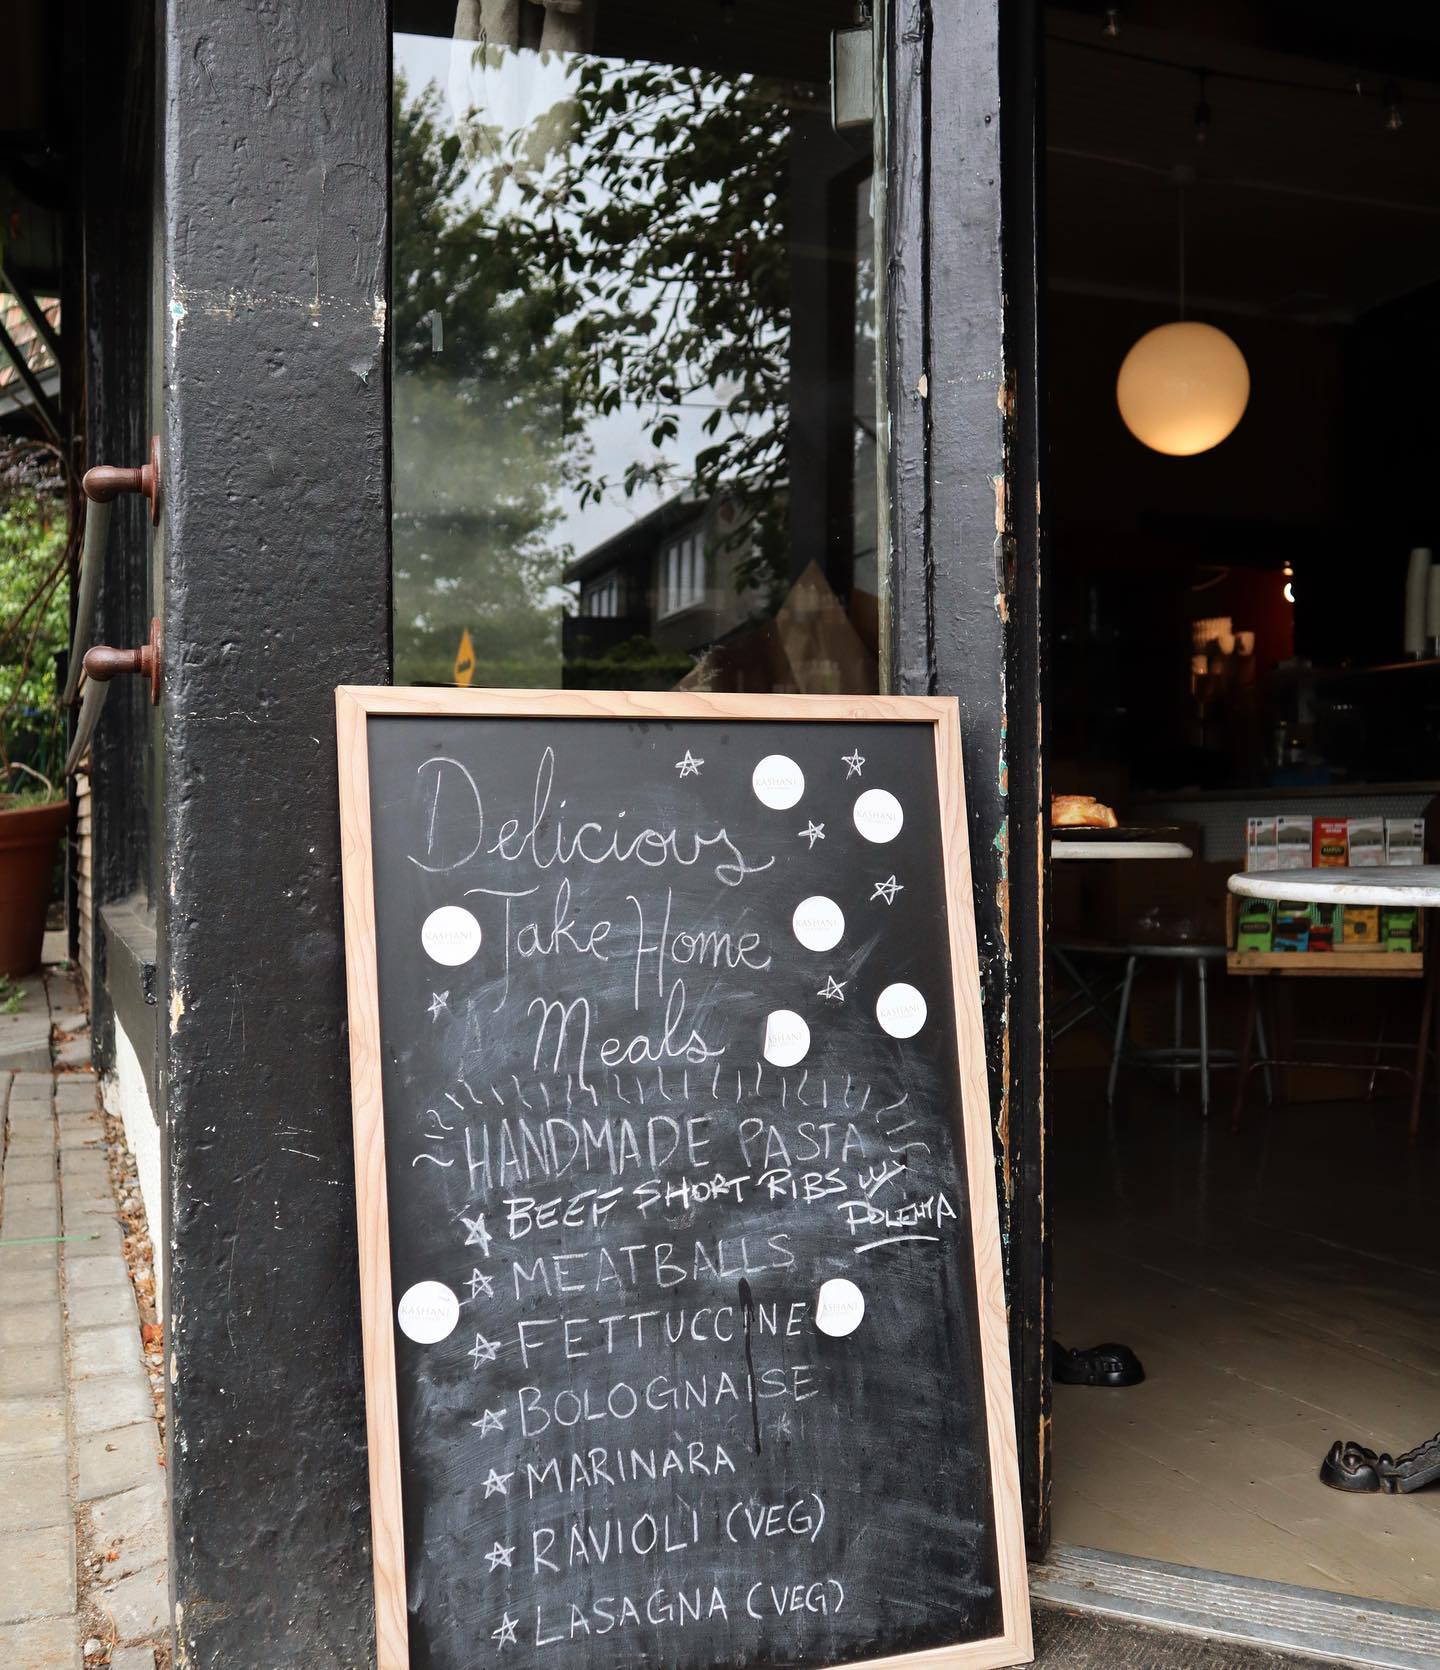 Delicious
Take Home
Meals
HANDMADE PASTA
BEEF SHORT RIBS W/
POLENTA
MEATBALLS
FETTUCCINE
BOLOGNAISE
MARINARA
RAVIOLI (VEG)
LASAGNA (VEG)
KASHANE
KASHANE
KASHANE
KASHANE
KASHANE
ASHANE
KASHANE
ASHANE